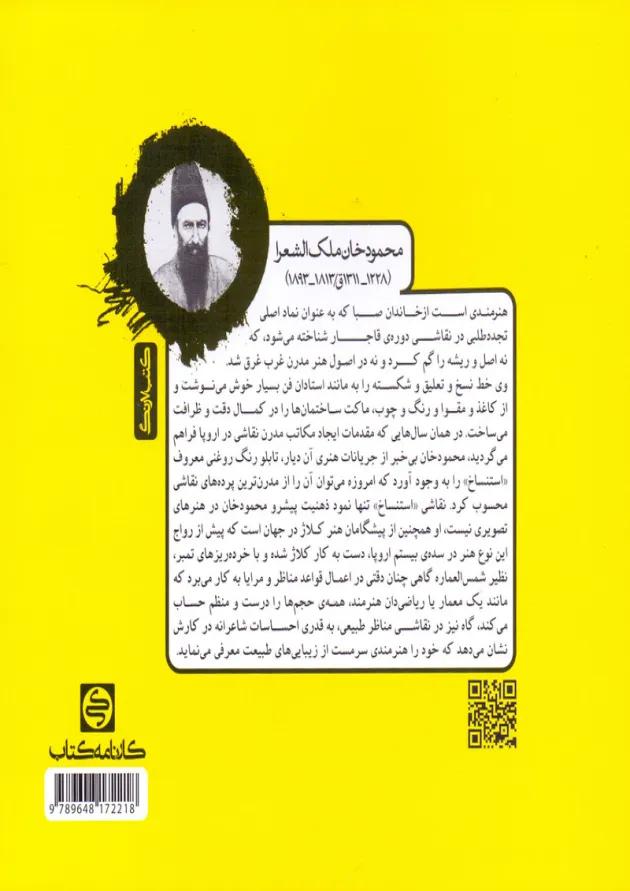 محمودخان ملک‌الشعرا
(۱۲۲۸_۱۳۱۱ق/۱۸۱۳_۱۸۹۳)
هنرمندی است ازخاندان صبا که به عنوان نماد اصلی
تجددطلبی در نقاشی دوره‌ی قاجار شناخته می‌شود، که
نه اصل و ریشه را گم کرد و نه در اصول هنر مدرن غرب غرق شد.
وی خط نسخ و تعلیق و شکسته را به مانند استادان فن بسیار خوش می‌نوشت و
از کاغذ و مقوا و رنگ و چوب، ماکت ساختمان‌ها را در کمال دقت و ظرافت
می‌ساخت. در همان سال‌هایی که مقدمات ایجاد مکاتب مدرن نقاشی در اروپا فراهم
می‌گردید، محمودخان بی‌خبر از جریانات هنری آن دیار، تابلو رنگ روغنی معروف
«استنساخ» را به وجود آورد که امروزه می‌توان آن را از مدرن‌ترین پرده‌های نقاشی
محسوب کرد. نقاشی «استنساخ» تنها نمود ذهنیت پیشرو محمودخان در هنرهای
تصویری نیست، او همچنین از پیشگامان هنر کلاژ در جهان است که پیش از رواج
این نوع هنر در سده‌ی بیستم اروپا، دست به کار کلاژ شده و با خرده‌ریزهای تمبر،
نظیر شمس‌العماره گاهی چنان دقتی در اعمال قواعد مناظر و مرایا به کار می‌برد که
مانند یک معمار یا ریاضی‌دان هنرمند، همه‌ی حجم‌ها را درست و منظم حساب
می‌کند، گاه نیز در نقاشی مناظر طبیعی، به قدری احساسات شاعرانه در کارش
نشان می‌دهد که خود را هنرمندی سرمست از زیبایی‌های طبیعت معرفی می‌نماید.
کتب۷رنگ
کارنامه کتاب
9 789648 172218